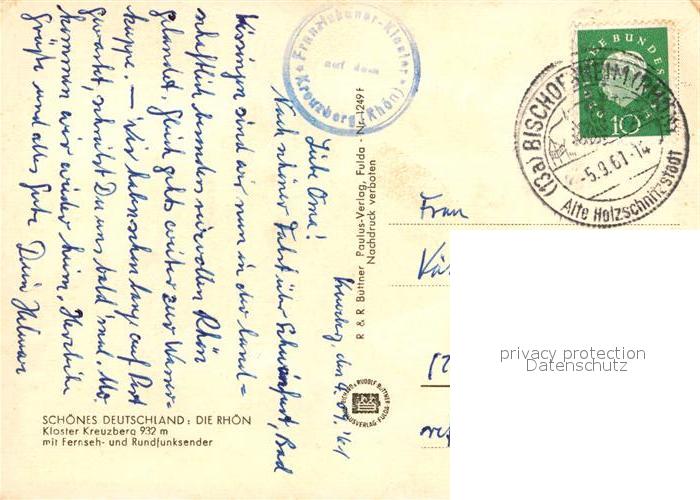 Kreuzberg, den 4.09.'61
Liebe Oma!
Nach schöner Fahrt über Schweinfurt, Bad
Kissingen sind wir nun in der land=
schaftlich besonders reizvollen Rhön
gelandet. Gleich geht's weiter zur Wasser=
kuppe. — Wir haben schon lange auf Post
gewartet, schreibst Du uns bald mal. Mo.
kommen wir wieder heim. Herzliche
Grüße und alles Gute Dein Helmar
Franziskaner-Kloster
auf dem
Kreuzberg (Rhön)
R & R Büttner Paulus-Verlag, Fulda - Nr. 1249 F
Nachdruck verboten
RUDOLF BÜTTNER
PAULUSVERLAG FULDA
SCHÖNES DEUTSCHLAND: DIE RHÖN
Kloster Kreuzberg 932 m
mit Fernseh- und Rundfunksender
10
(13a) BISCHOFSHEIM (RHÖN)
-5.9.61-14
Alte Holzschnitzstadt
Frau
privacy protection
Datenschutz